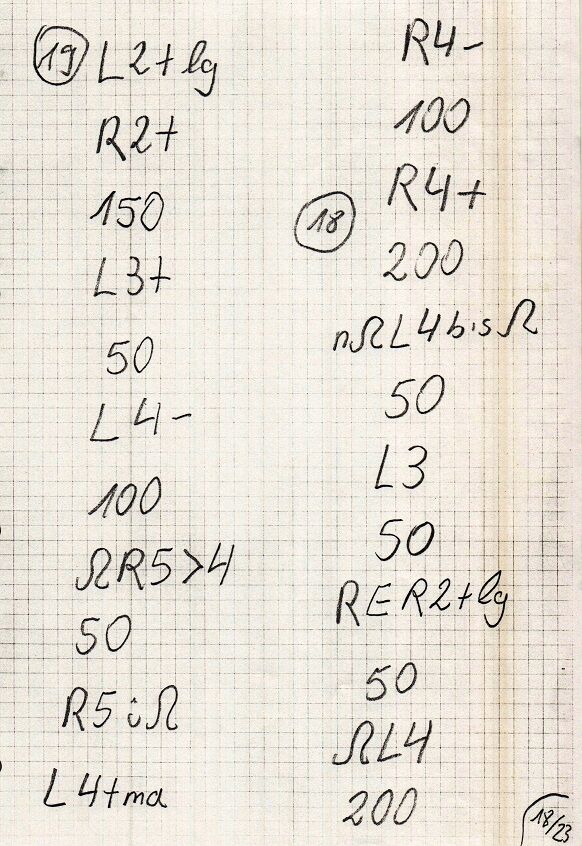 19 L2+lg
R2+
150
L3+
50
L4-
100
ΩR5>4
50
R5iΩ
L4+ma
R4-
100
R4+
18
200
nΩL4bisΩ
50
L3
50
RER2+lg
50
ΩL4
200
18/23